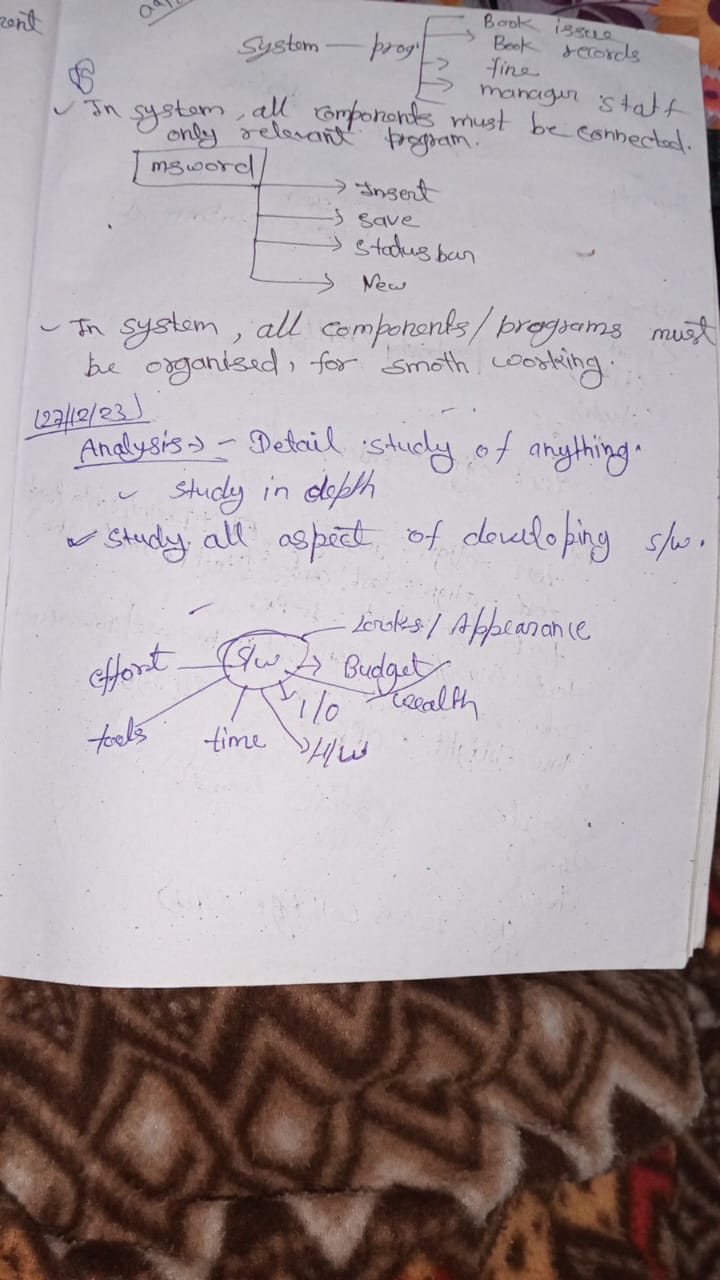 Book issue
System — prog
Book records
fine
manager staff
In system, all components must be connected.
only relevant program.
msword
Insert
save
Status bar
New
In system, all components/programs must
be organised, for smoth working.
(27/12/23)
Analysis → - Detail study of anything.
Study in depth
Study all aspect of developing s/w.
Looks/ Appearance
effort
S/w
Budget
I/O
wealth
tools
time
H/w